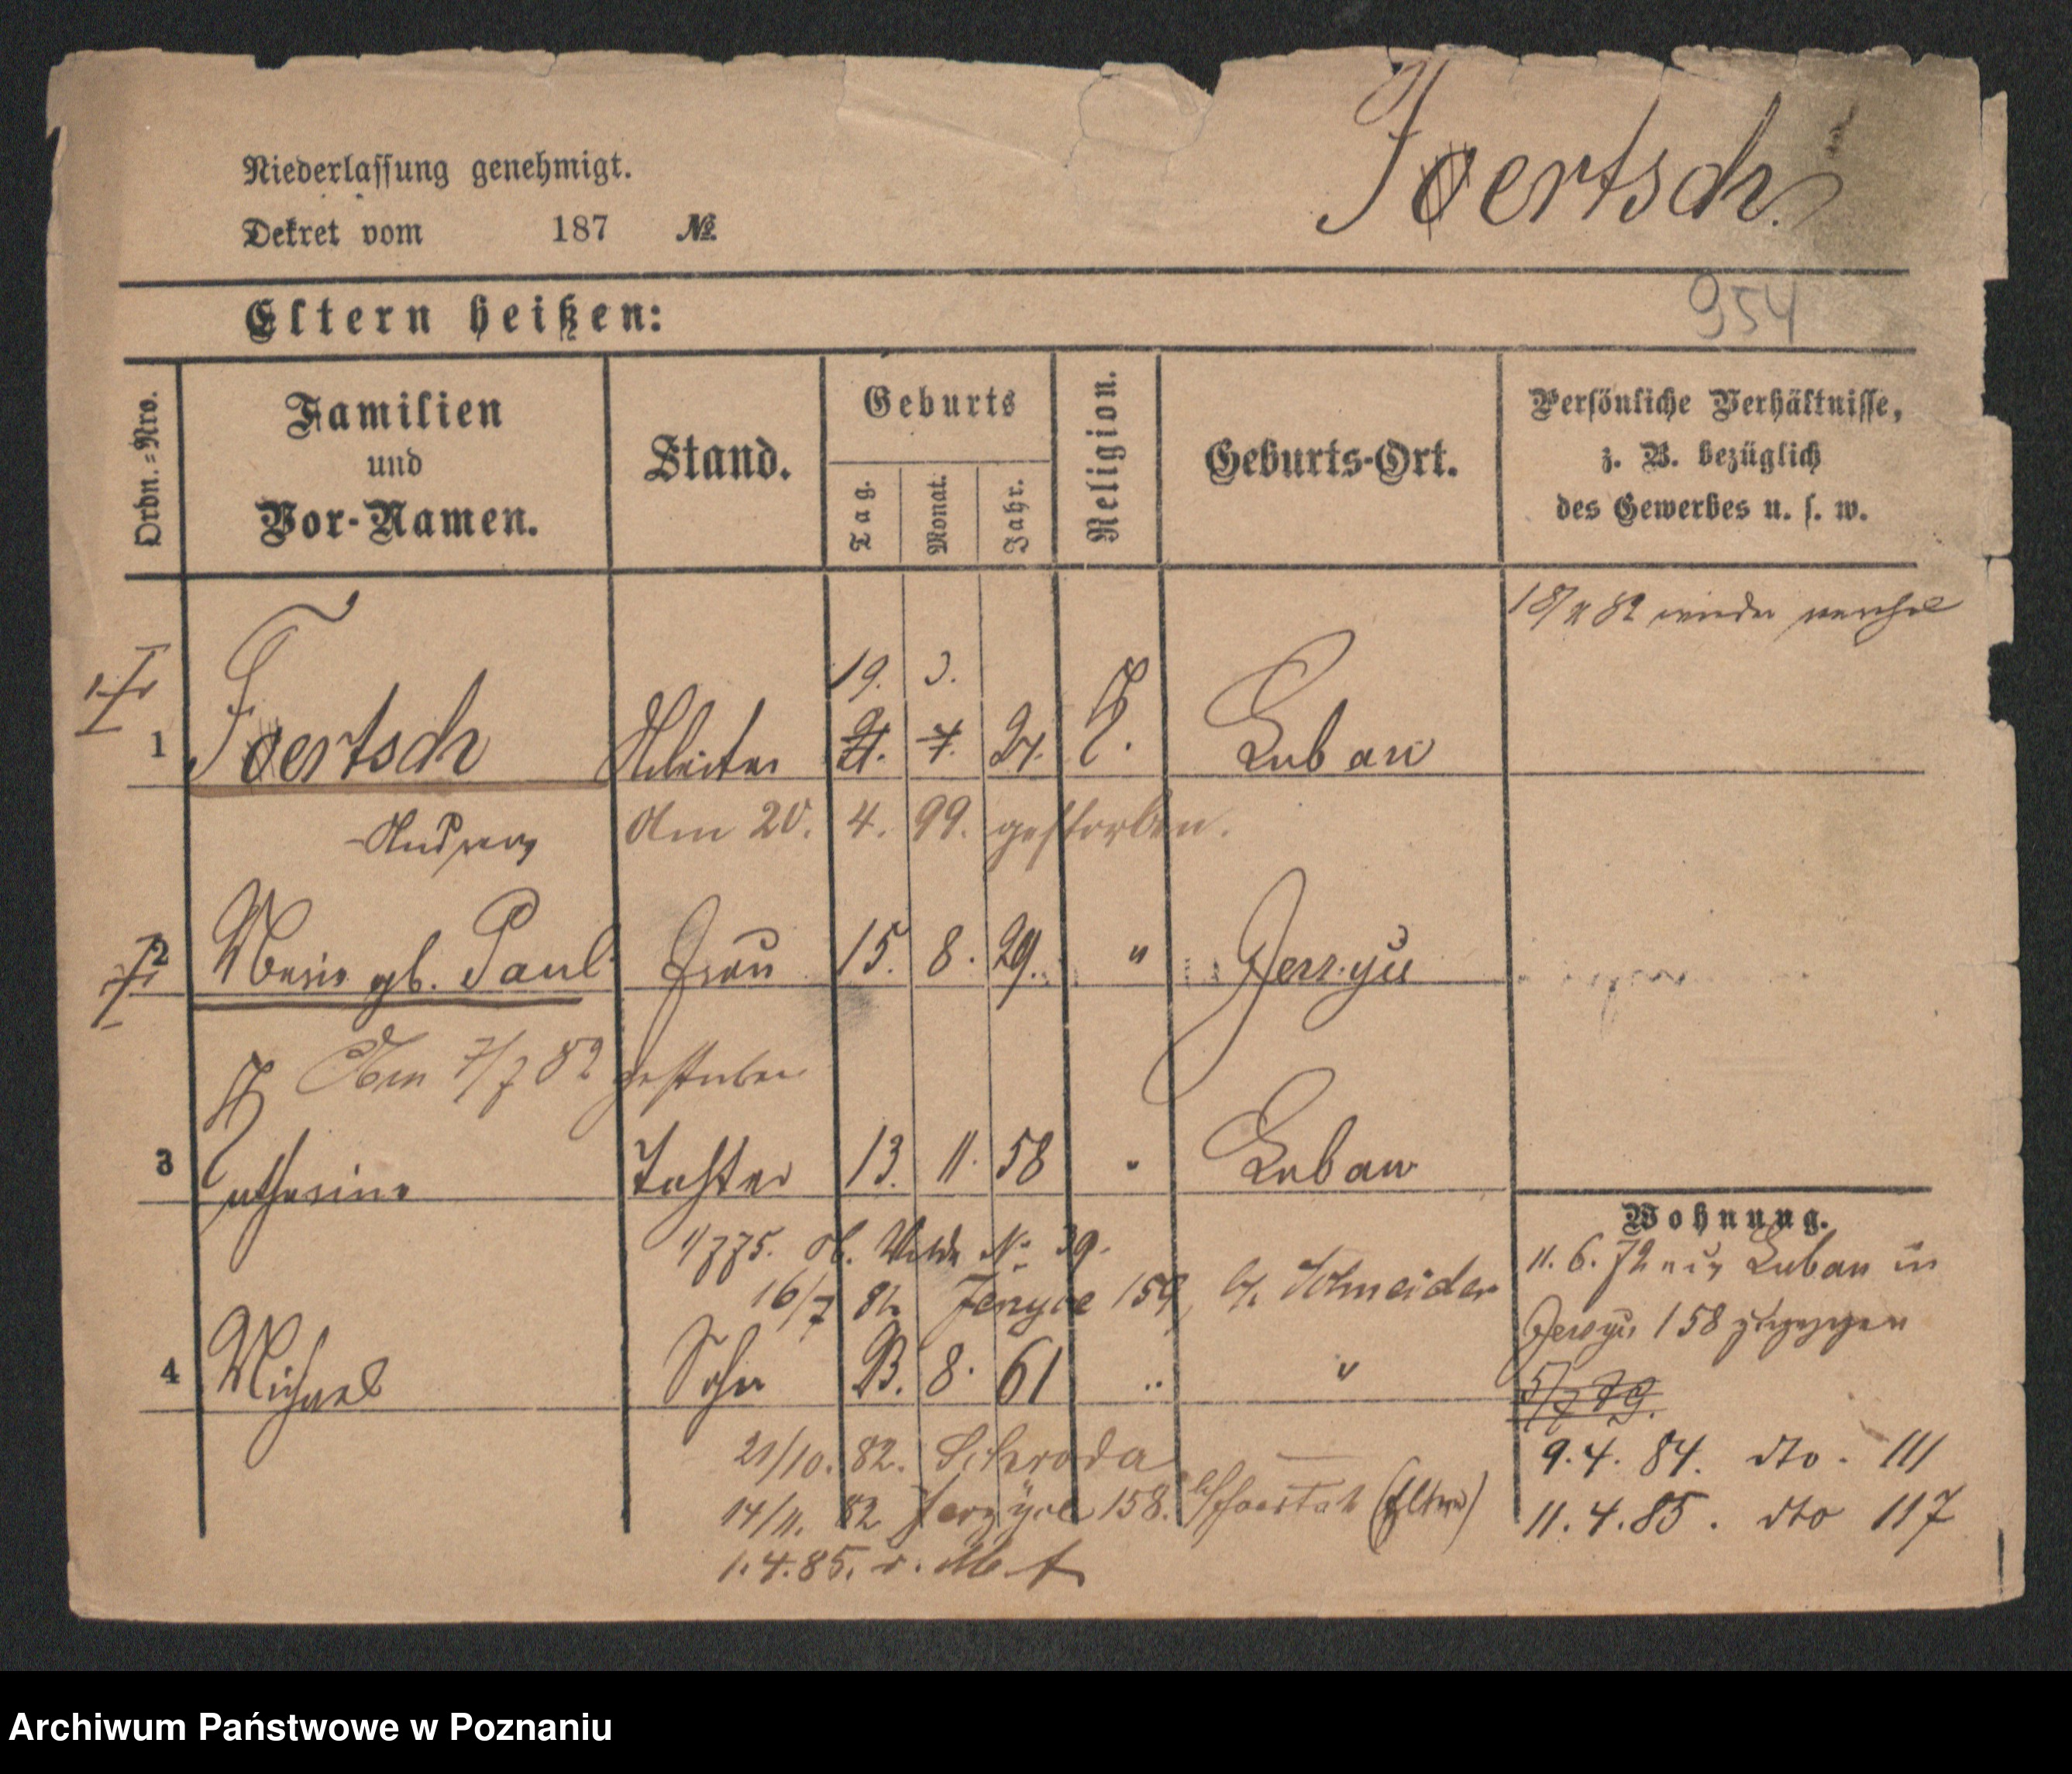 Niederlassung genehmigt.
Foertsch.
Dekret vom 187 №
954
Eltern heißen:
Ordn.=Nro.
Familien und Vor-Namen.
Stand.
Geburts
Tag. Monat. Jahr.
Religion.
Geburts-Ort.
Persönliche Verhältnisse,
z. B. bezüglich
des Gewerbes u. s. w.
82 wieder
19. 3.
1 Foertsch Arbeiter 21. 7. 24. K. Luban
Andreas Am 20. 4. 99. gestorben.
2 Marie gb. Paul Frau 15. 8. 29. " Jerzyce
Am 7/7 82 gestorben
3 Katharina Tochter 13. 11. 58 " Luban
Wohnung.
1/7 75. ob. Wilda No 39.
11. 6. 72 aus Luban in
16/7 82 Jerzyce 159, b/ Schneider
Jerzyce 158 zugezogen
4 Michael Sohn 23. 8. 61 " "
5/7 79.
21/10. 82. Schroda
9. 4. 84. dto. 111
14/11. 82 Jerzyce 158. b/ (Eltern)
11. 4. 85. dto 117
1. 4. 85.
Archiwum Państwowe w Poznaniu